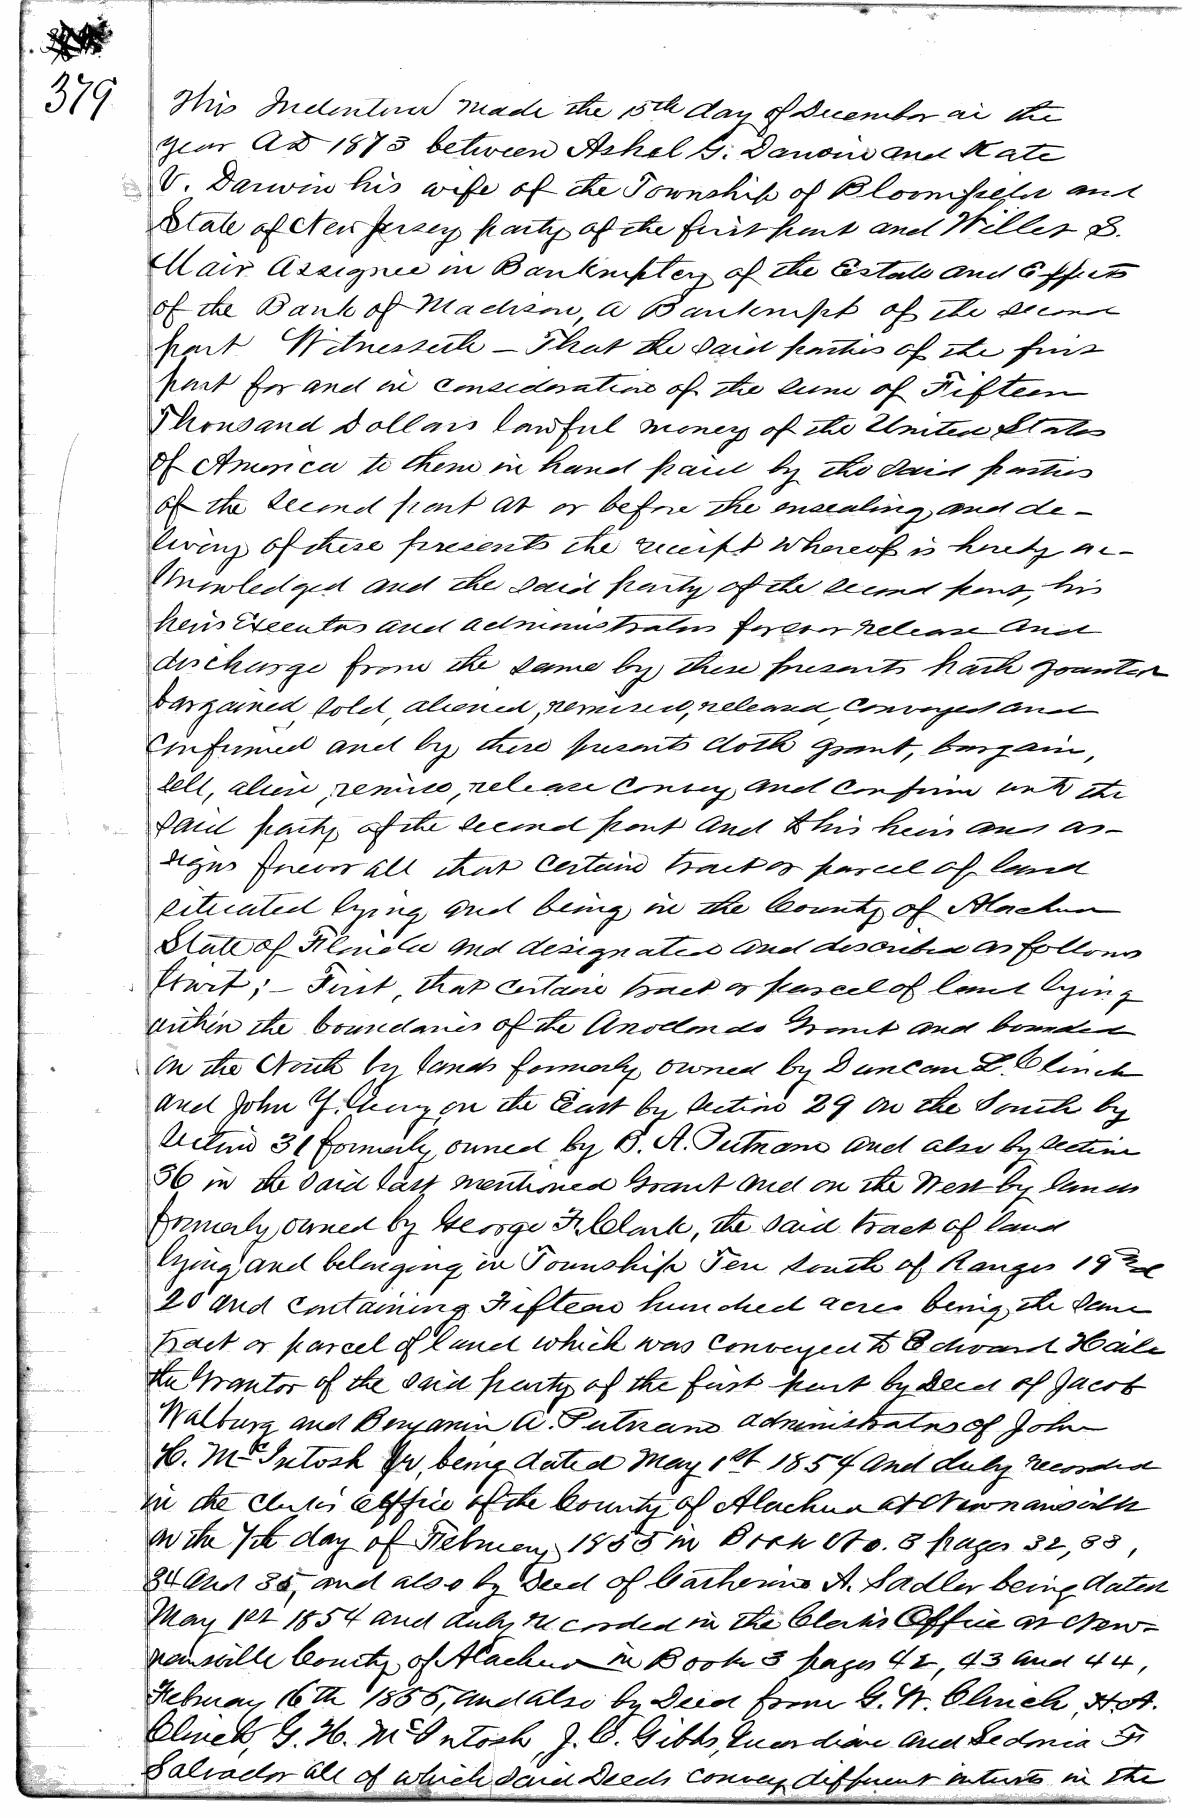 379
This Indenture made the 15th day of December in the
year AD 1873 between Ashel G. Darwin and Kate
V. Darwin his wife of the Township of Bloomfield and
State of New Jersey party of the first part and Miller S.
Mair Assignee in Bankruptcy of the Estate and Effects
of the Bank of Madison, a Bankrupt of the second
part Witnesseth – That the said parties of the first
part for and in consideration of the sum of Fifteen
Thousand Dollars lawful money of the United States
of America to them in hand paid by the said parties
of the second part at or before the ensealing and de-
livery of these presents the receipt whereof is hereby ac-
knowledged and the said party of the second part, his
heirs Executors and administrators forever release and
discharge from the same by these presents hath granted
bargained, sold, aliened, remised, released, conveyed and
confirmed and by these presents doth grant, bargain,
sell, alien, remise, release convey and confirm unto the
said party of the second part and to his heirs and as-
signs forever all that certain tract or parcel of land
situated lying and being in the County of Alachua
State of Florida and designated and described as follows
towit; – First, that certain tract or parcel of land lying
within the boundaries of the Arredondo Grant and bounded
on the North by lands formerly owned by Duncan L. Clinch
and John Y. on the East by Section 29 on the South by
Section 31 formerly owned by B. A. Putnam and also by section
36 in the said last mentioned Grant and on the West by lands
formerly owned by George F. Clark, the said tract of land
lying and belonging in Township Ten south of Ranges 19 and
20 and containing Fifteen hundred acres being the same
tract or parcel of land which was conveyed to Edward Haile
the Grantor of the said party of the first part by Deed of Jacob
Walburg and Benjamin A. Putnam administrators of John
H. McIntosh Jr, being dated May 1st 1854 and duly recorded
in the Clerk's Office of the County of Alachua at Newnansville
on the 7th day of February 1855 in Book No. 3 pages 32, 33,
34 and 35, and also by Deed of Catherine A. Sadler being dated
May 1st 1854 and duly recorded in the Clerk's Office at New-
nansville County of Alachua in Book 3 pages 42, 43 and 44,
February 16th 1855, and also by Deed from G. W. Clinch, H. A.
Clinch, G. H. McIntosh, J. C. Gibbs, Guardian and Sedonia F
Salvador all of which said Deeds convey different interests in the